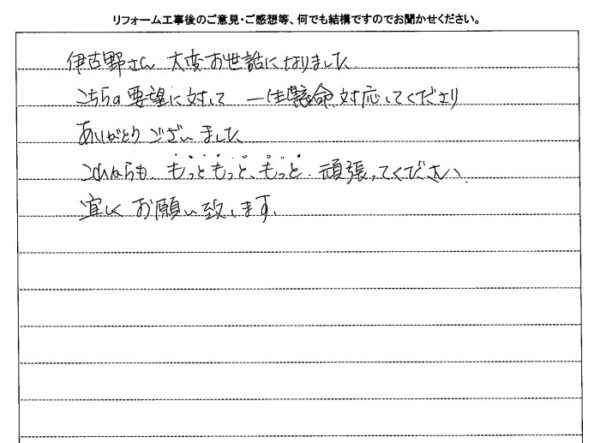 リフォーム工事後のご意見・ご感想等、何でも結構ですのでお聞かせください。
伊古野さん 大変お世話になりました
こちらの要望に対して 一生懸命 対応してくださり
ありがとうございました
これからも、もっともっと、もっと、頑張ってください。
宜しくお願い致します。